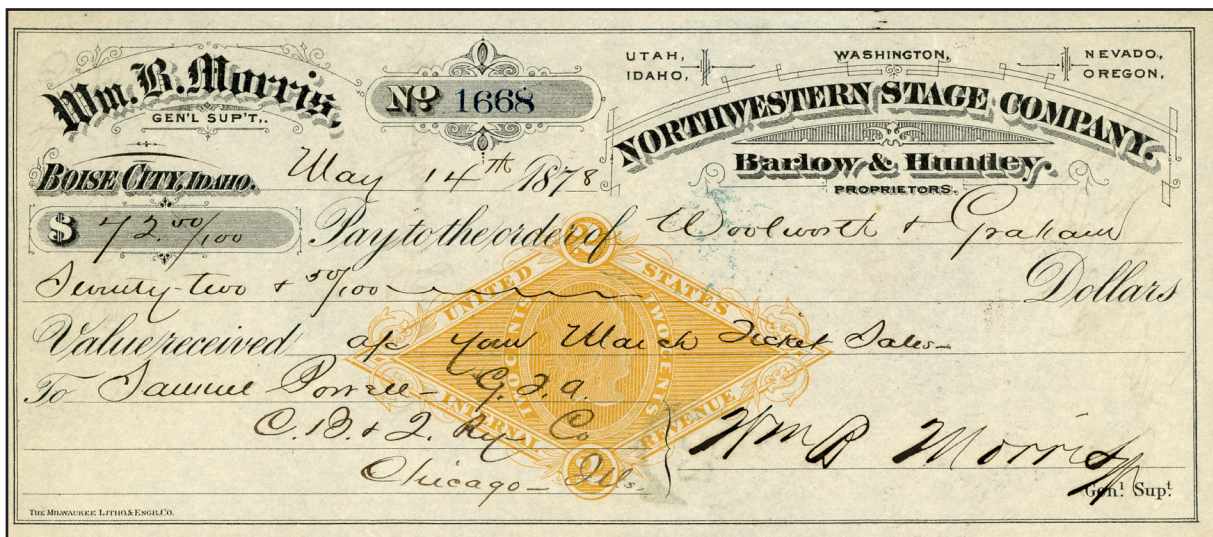 Wm. B. Morris,
GEN'L SUP'T,.
Nº 1668
UTAH, WASHINGTON, NEVADO,
IDAHO, OREGON,
NORTHWESTERN STAGE COMPANY.
Barlow & Huntley.
PROPRIETORS.
BOISE CITY, IDAHO. May 14th 1878
$ 72.50/100 Pay to the order of Woolworth & Graham
Seventy-two & 50/100 Dollars
Value received a/c your March Ticket Sales
To Samuel Powell - G.T.A.
C.B.& Q. Ry Co
Chicago - Ills.
Wm B Morris
Gen! Sup!
UNITED STATES
INTERNAL REVENUE
TWO CENTS
TWO CENTS
2
2
THE MILWAUKEE LITHO & ENGR. CO.